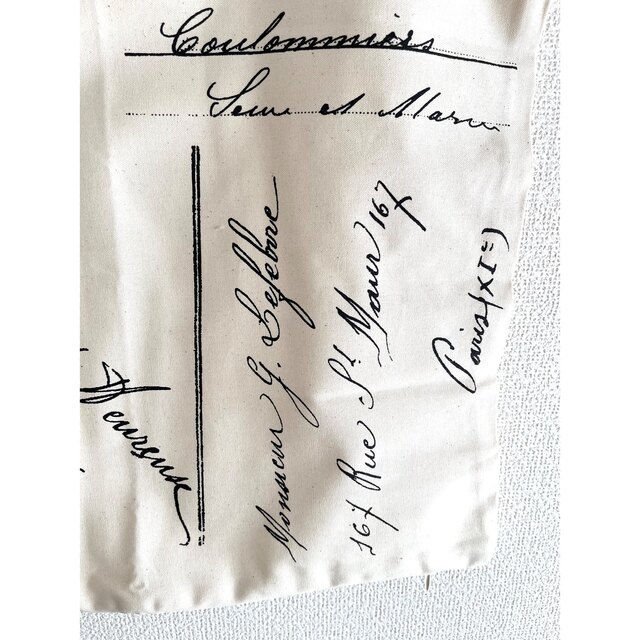 Coulommiers
Seine et Marne
Monsieur G. Lefebvre
167 Rue St Maur 167
Paris (XIe)